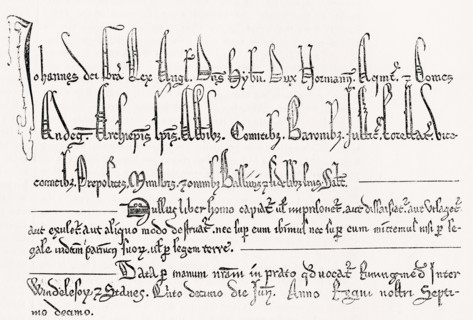 Johannes dei grã Rex Angl. Dñs Hybñ. Dux Normanñ. Aqmt̃. ⁊ Comes
Andeg. Archiepis̃ Ep̃is. Abb̃ib3. Comitib3. Baronib3. Justic̃. forestar̃. vice-
comitib3. Prepositis. Ministris. ⁊ omnib3 Ballivis ⁊ fidelib3 suis Salt̃.
Nullus liber homo capiat̃ vl̃ imprisonet̃. aut dissaisiat̃. aut utlaget̃
aut exulet̃ aut aliquo modo destruat̃. nec sup̃ eum ibimus nec sup̃ eum mittemus nisi p̃ le-
gale iudiciũ pariuɱ suoɽ. vl̃ p̃ legem terre.
Data p̃ manum nr̃am in prato q̃d vocat̃ Runingmed̃ Inter
Windelesoɽ ⁊ Stanes. Quinto decimo die Juñ. Anno Regni nostri Septi-
mo decimo.